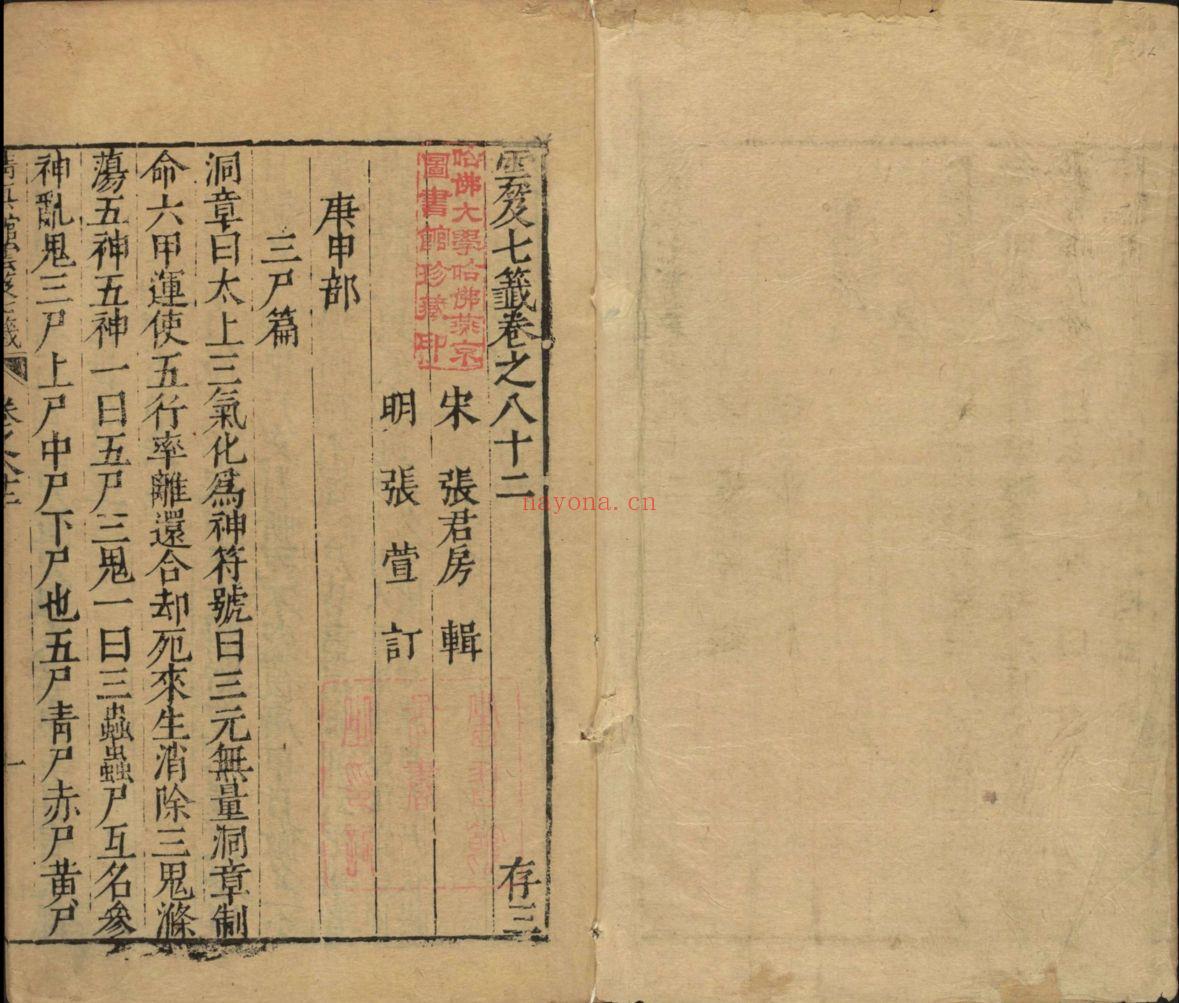 雲笈七籤卷之八十二 存三
宋 張君房 輯
明 張萱 訂
庚申部
三尸篇
洞章曰太上三氣化爲神符號曰三元無量洞章制
命六甲運使五行率離還合却死來生消除三鬼滌
蕩五神五神一曰五尸三鬼一曰三蟲蟲尸互名參
神亂鬼三尸上尸中尸下尸也五尸青尸赤尸黃尸
清真館雲笈七籤 卷之八十二 一
哈佛大學哈佛燕京
圖書館珍藏印
nayona.cn